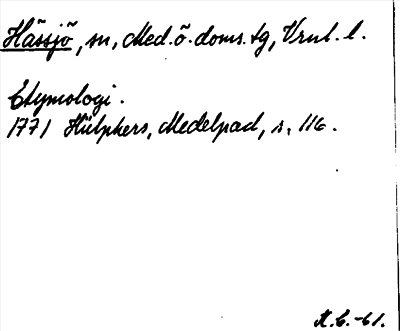 Hässjö, sn, Med. ö. doms. tg, Vrnl. l.
Etymologi.
1771 Hülphers, Medelpad, s. 116.
A.C. -61.